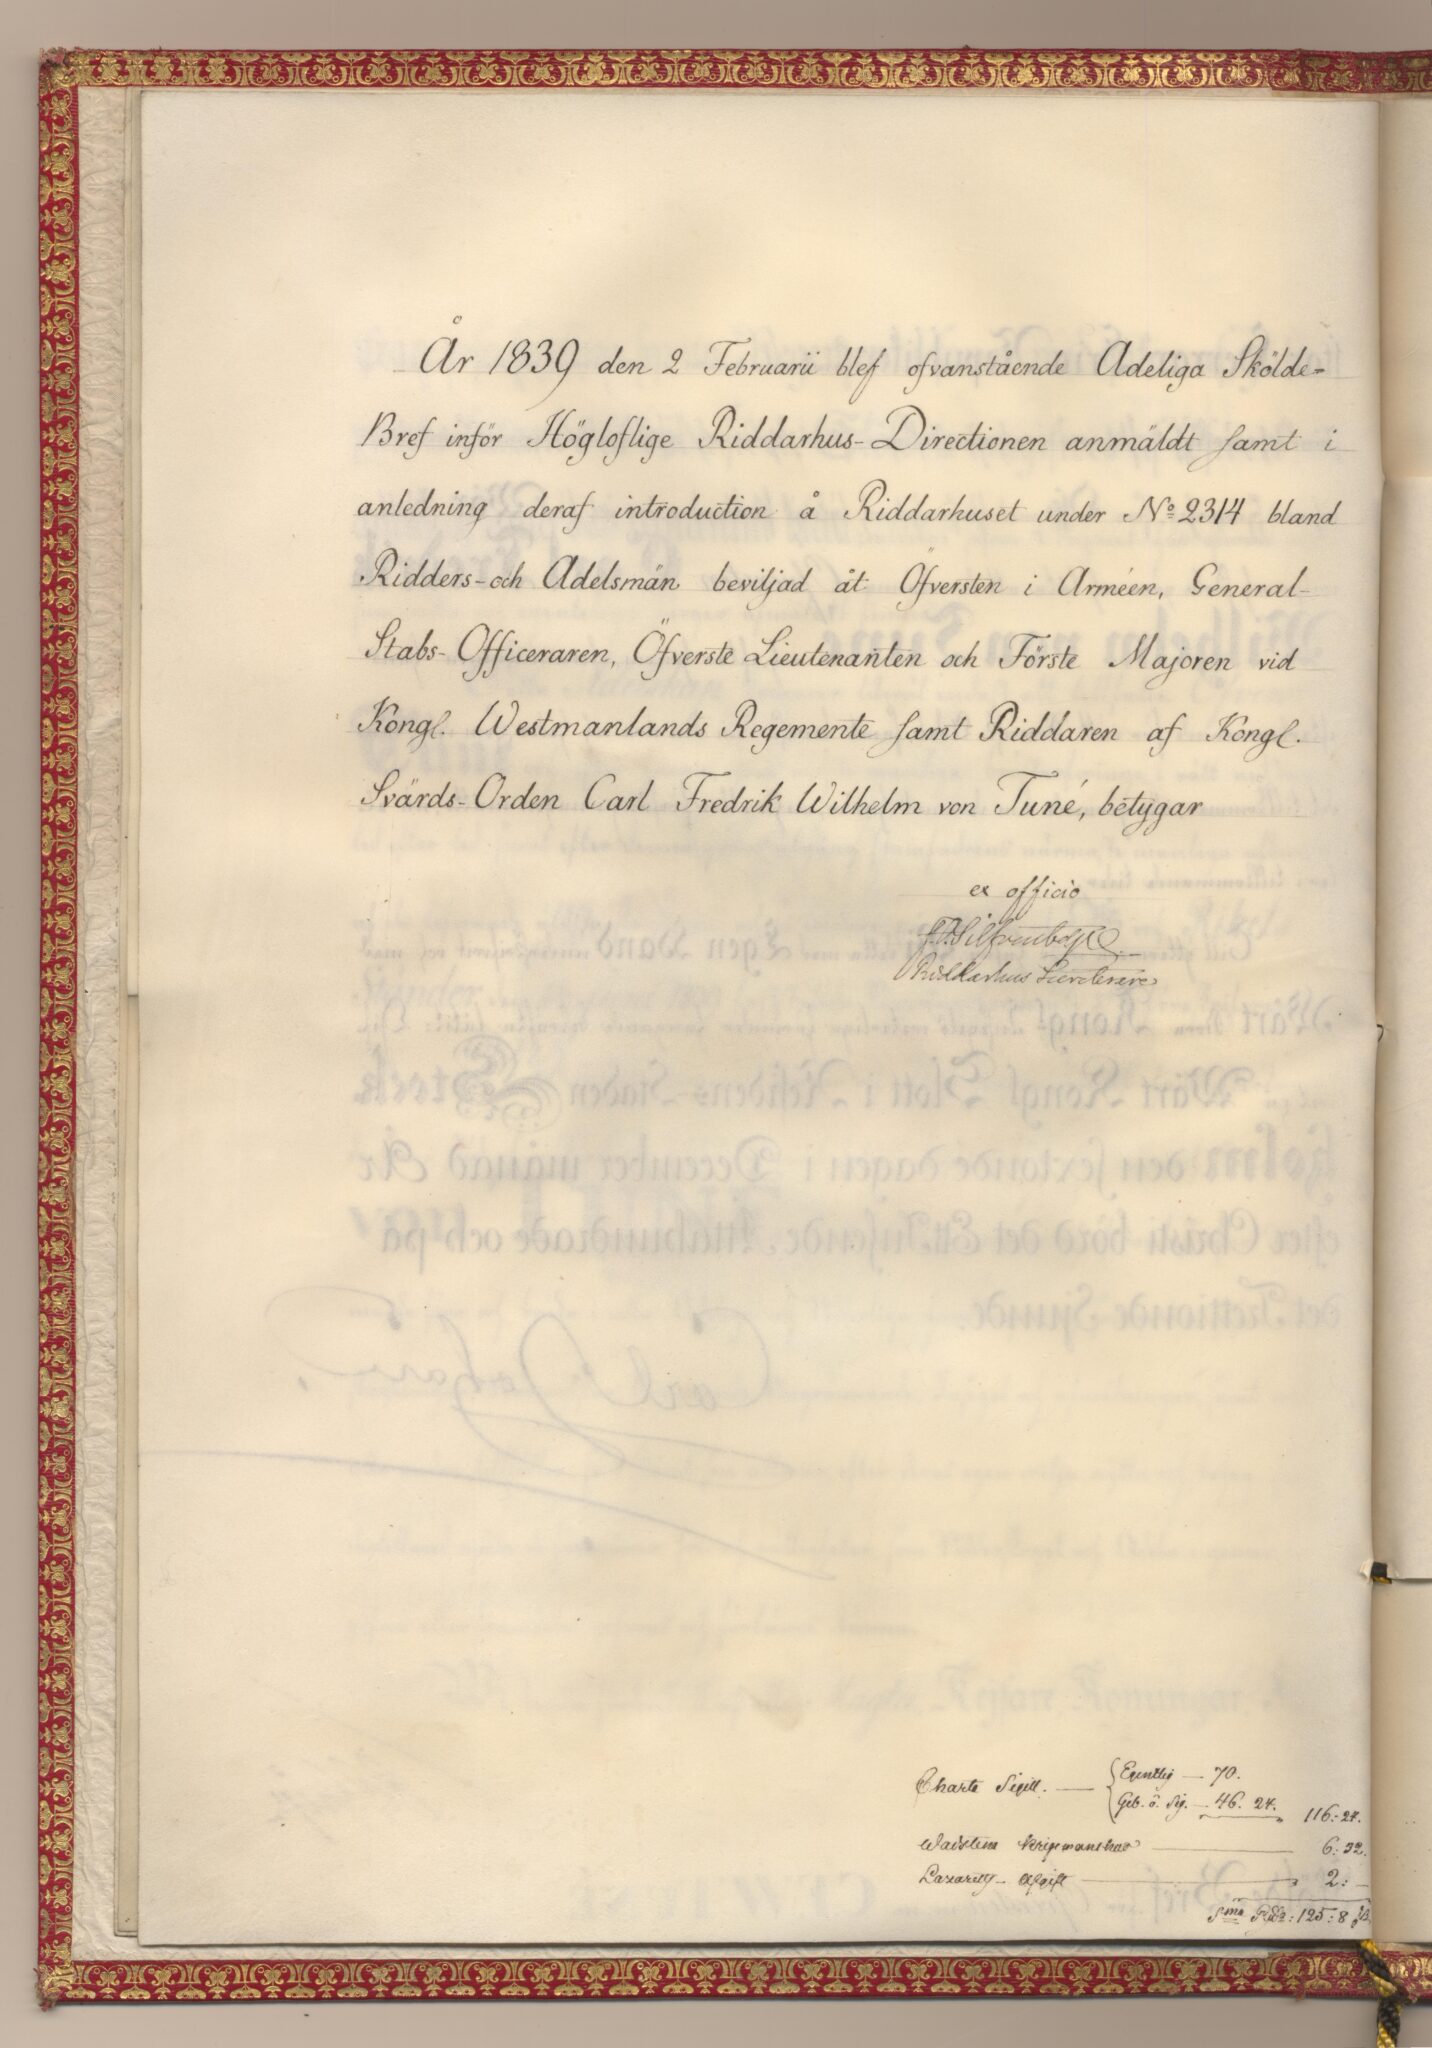 År 1839 den 2 Februarii blef ofvanstående Adeliga Skölde-
Bref inför Högloflige Riddarhus-Directionen anmäldt samt i
anledning deraf introduction å Riddarhuset under No 2314 bland
Ridders-och Adelsmän beviljad åt Öfversten i Arméen, General-
Stabs-Officeraren, Öfverste Lieutenanten och Förste Majoren vid
Kongl. Westmanlands Regemente samt Riddaren af Kongl.
Svärds-Orden Carl Fredrik Wilhelm von Tuné, betygar
ex officio
Riddarhus Secreterare
Charte Sigill. — Egentlig — 70.
Geb. o. Sig. — 46. 24. 116:24.
Wadstena Krigsmanshus — 6:32.
Lazaretts-Afgift — 2:—
Sma Rdr: 125:8